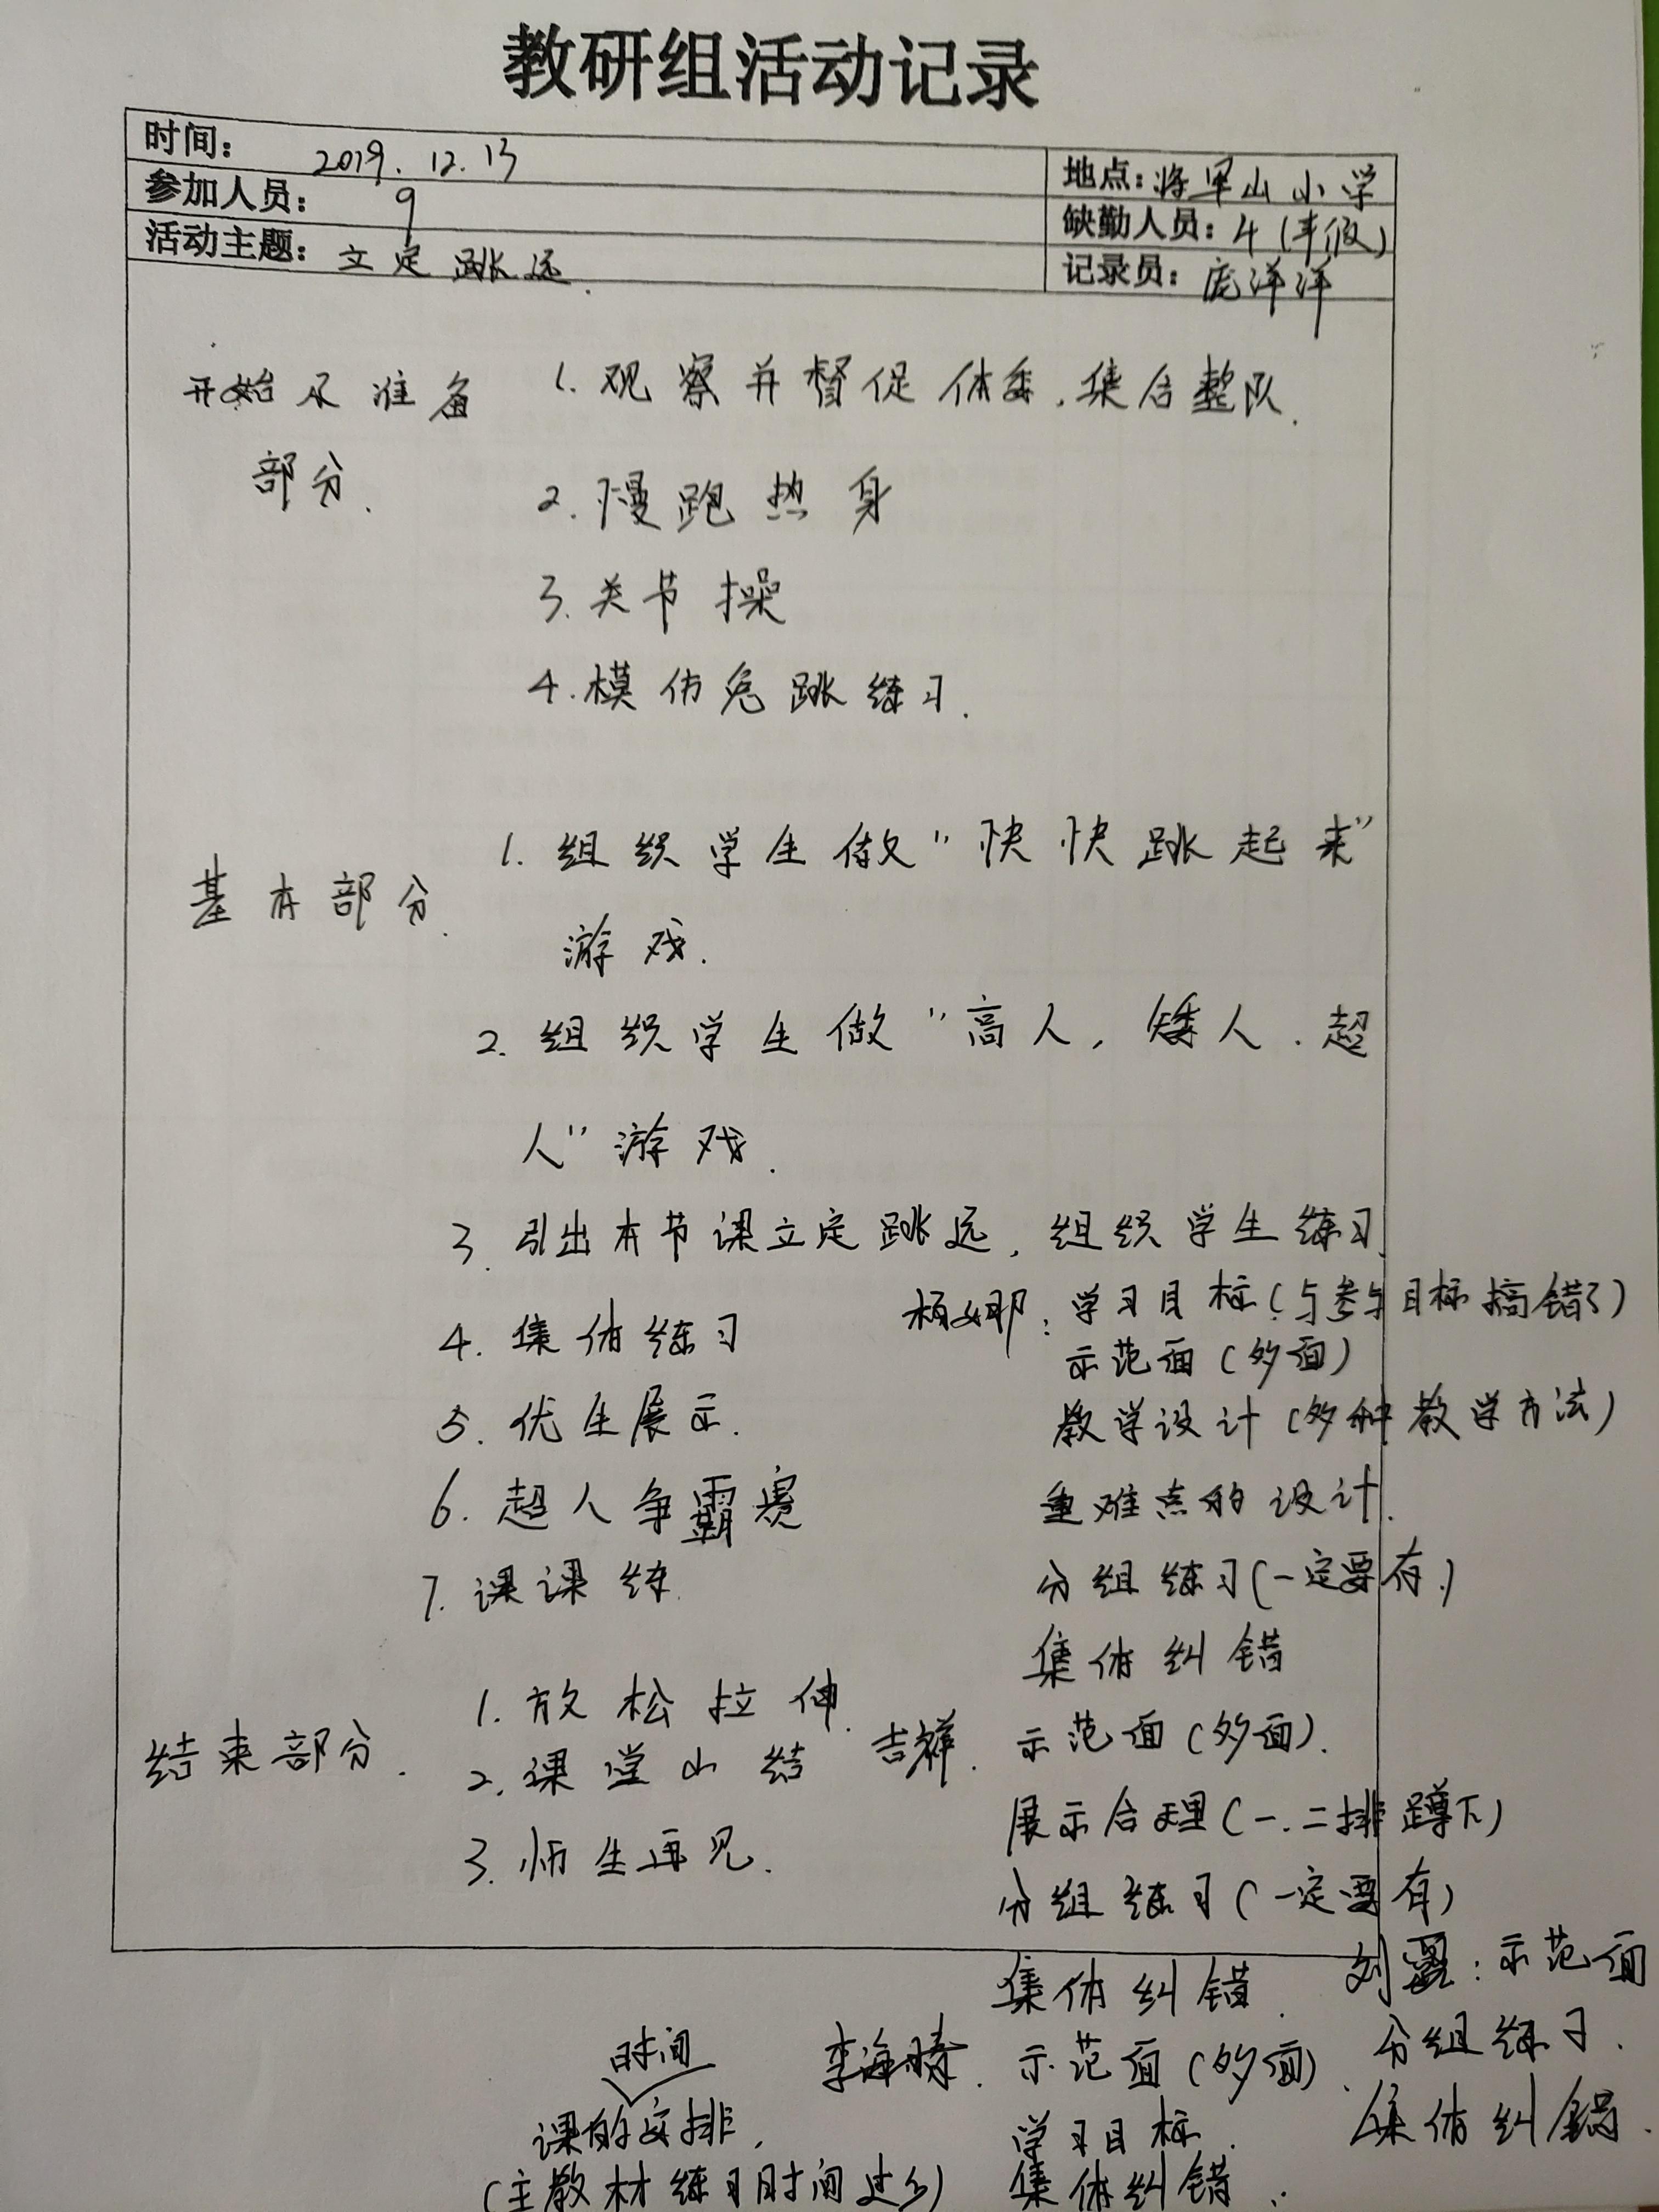 教研组活动记录
时间： 2019. 12. 13
地点：将军山小学
参加人员： 9
缺勤人员：4（事假）
活动主题：立定跳远.
记录员：庞洋洋
开始及准备
部分.
1. 观察并督促体委，集合整队.
2. 慢跑热身
3. 关节操
4. 模仿兔跳练习.
基本部分.
1. 组织学生做“快快跳起来”
游戏.
2. 组织学生做“高人，矮人.超
人”游戏.
3. 引出本节课立定跳远，组织学生练习.
4. 集体练习
5. 优生展示.
6. 超人争霸赛
7. 课课练.
杨娜：学习目标（与参与目标搞错了）
示范面（多面）
教学设计（多种教学方法）
重难点的设计.
分组练习（一定要有.）
集体纠错
结束部分.
1. 放松拉伸.
2. 课堂小结
3. 师生再见.
吉祥. 示范面（多面）.
展示合理（一.二排蹲下）
分组练习（一定要有）
集体纠错.
李海 . 示范面（多面）.
学习目标.
集体纠错.
刘 ：示范面
分组练习.
集体纠错.
时间
课的安排.
（主教材练习时间过少）